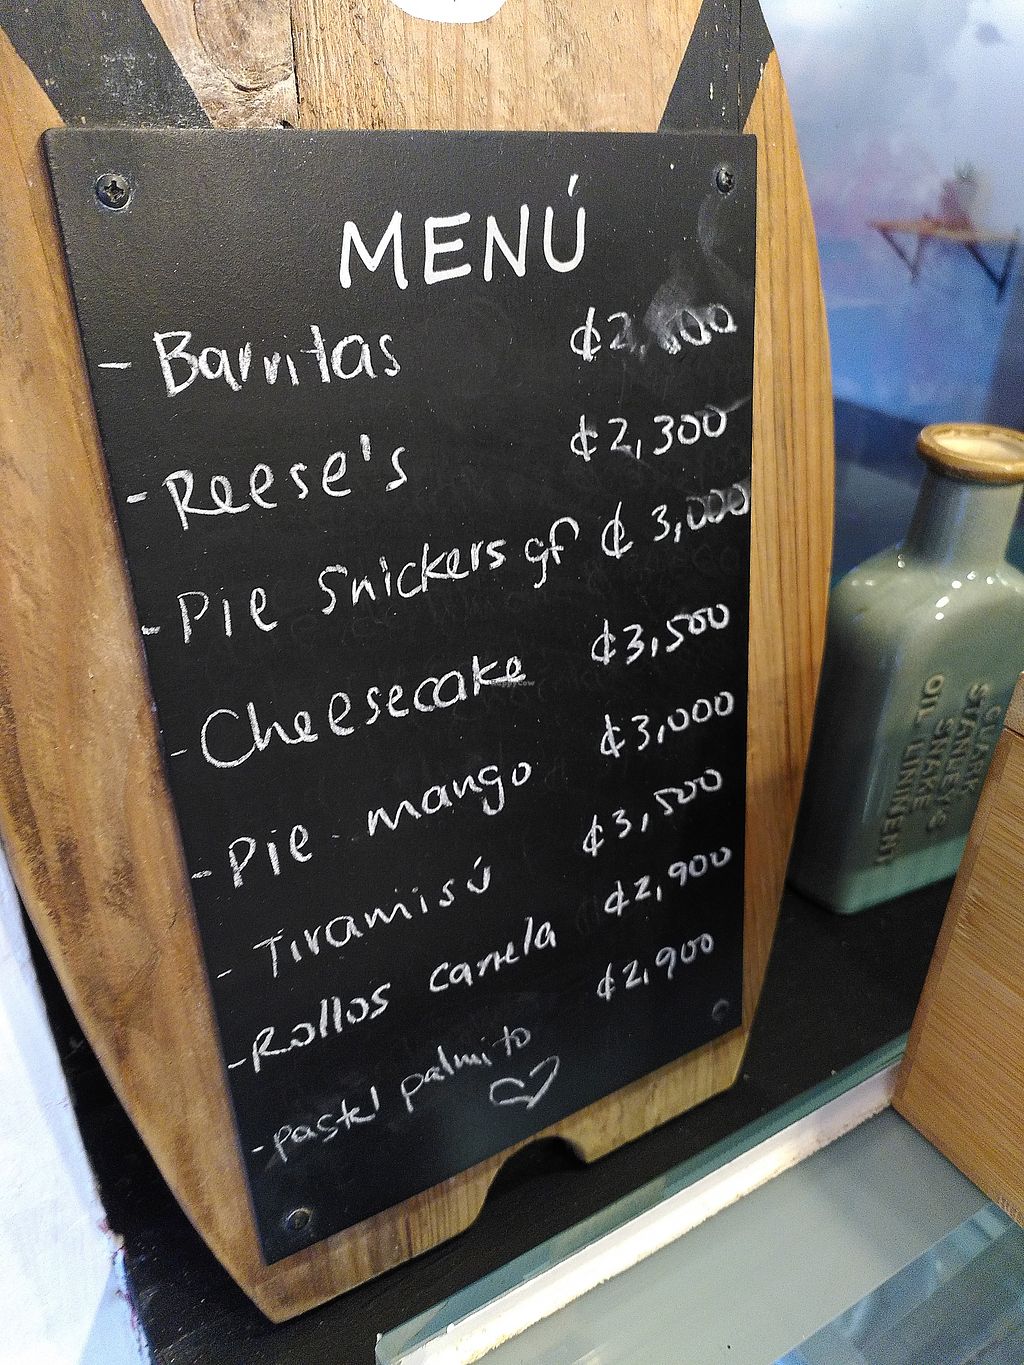 MENÚ
- Barritas ₡2,800
- Reese's ₡2,300
- Pie Snickers gf ₡ 3,000
- Cheesecake ₡3,500
- Pie mango ₡3,000
- Tiramisú ₡3,500
- Rollos canela ₡2,900
- pastel palmito ₡2,900
CLARK
STANLEY'S
SNAKE
OIL LINIMENT
HappyCow